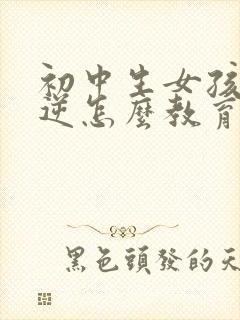 初中生女孩
逆怎麼教育
黑色頭發的天